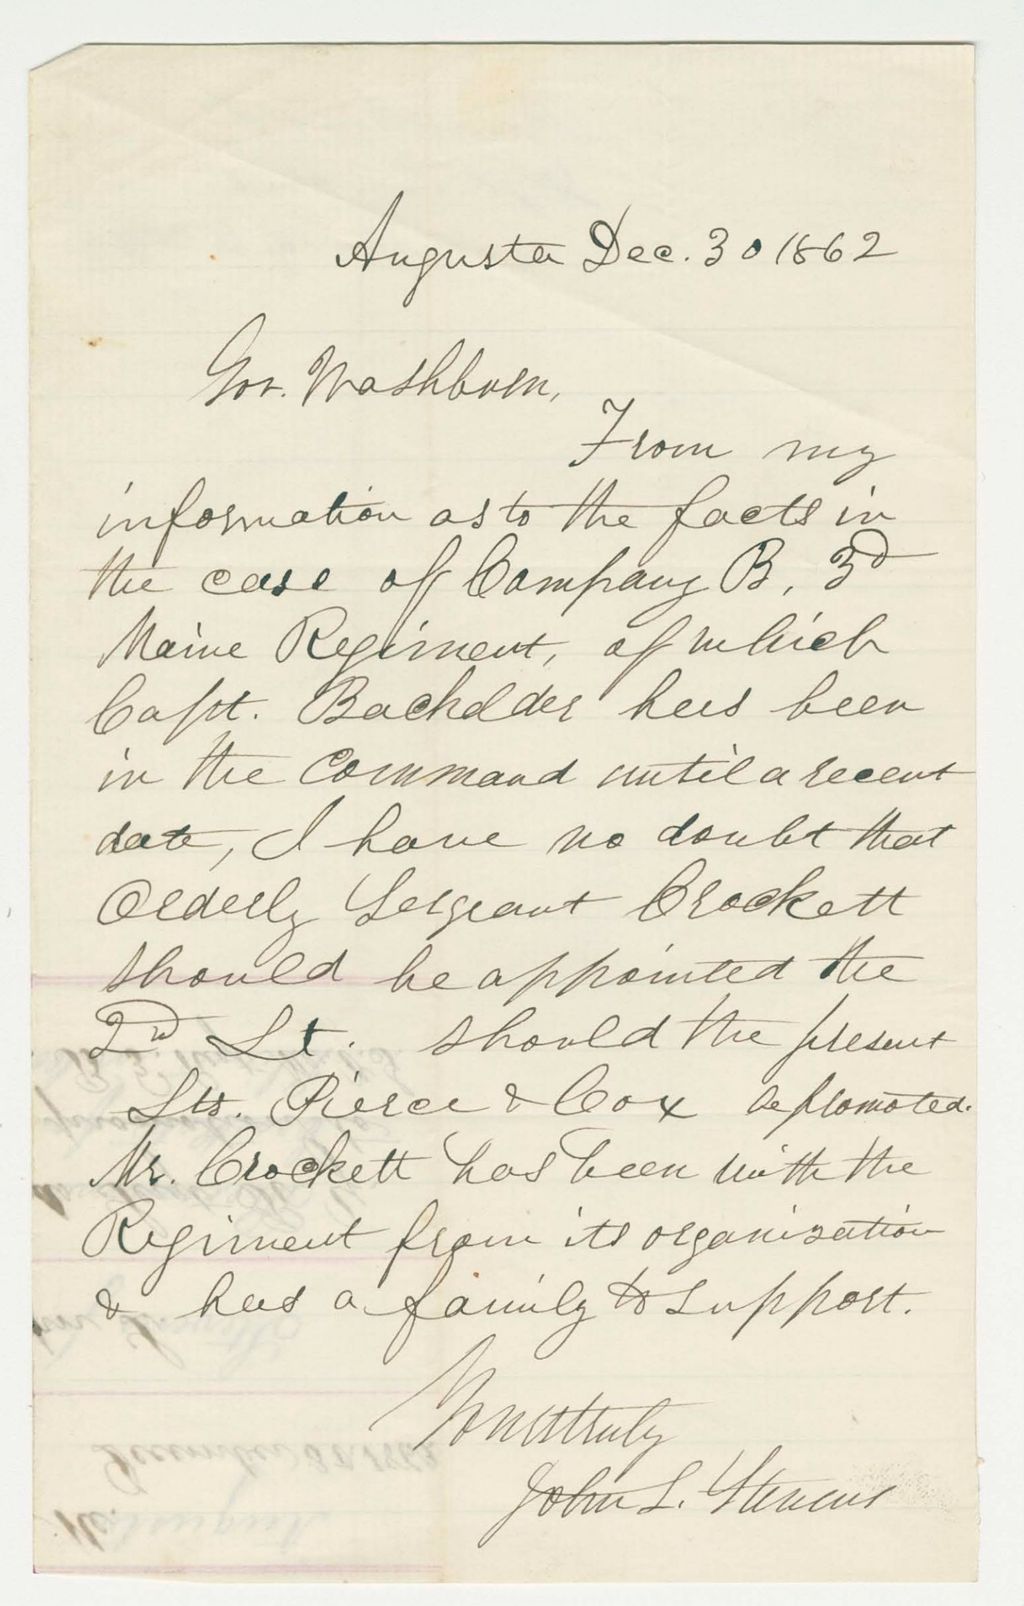 Augusta Dec. 30 1862
Gov. Washburn,
From my
information as to the facts in
the case of Company B, 3d
Maine Regiment, of which
Capt. Bachelder has been
in the command until a recent
date, I have no doubt that
Orderly Sergeant Crockett
should be appointed the
2nd Lt. should the present
Lts. Pierce & Cox be promoted.
Mr. Crockett has been with the
Regiment from its organization
& has a family to support.
Yours truly
John L. Stevens